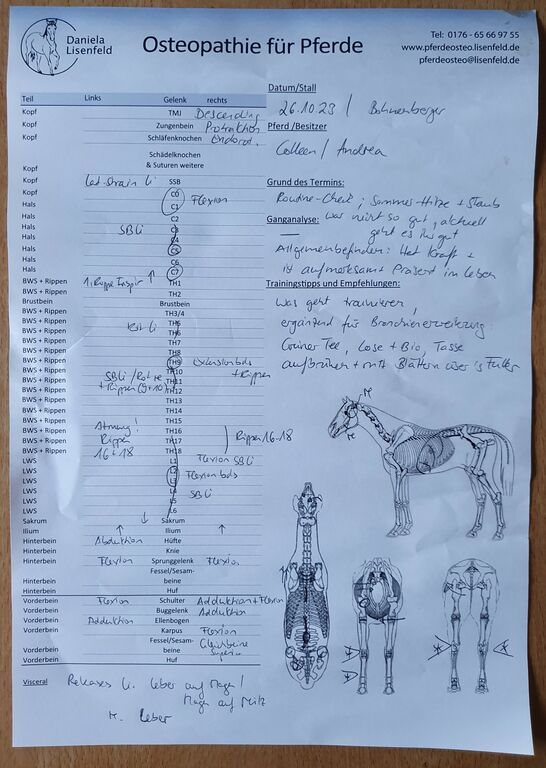 Daniela
Lisenfeld
Osteopathie für Pferde
Tel: 0176 - 65 66 97 55
www.pferdeosteo.lisenfeld.de
pferdeosteo@lisenfeld.de
Datum/Stall
26.10.23 / Bohnenberger
Pferd/Besitzer
Colleen / Andrea
Grund des Termins:
Routine-Check; Sommer-Hitze + Staub
Ganganalyse: war nicht so gut, aktuell
— geht es ihr gut
Allgemeinbefinden: Hat Kraft +
ist aufmerksam + präsent im Leben
Trainingstipps und Empfehlungen:
Was geht trainieren,
ergänzend für Bronchienerweiterung:
Grüner Tee, Lose + Bio, Tasse
aufbrühen + mit Blättern über's Futter
Teil Links Gelenk rechts
Kopf TMJ Descending
Kopf Zungenbein Protraktion
Kopf Schläfenknochen Endorot.
Schädelknochen
Kopf & Suturen weitere
Kopf Lat-Strain li SSB
Kopf C0
Hals C1 Flexion
Hals C2
Hals SB li C3
Hals C4
Hals C5
Hals C6
Hals C7
BWS + Rippen 1. Rippe Inspir ↑ TH1
BWS + Rippen TH2
Brustbein Brustbein
BWS + Rippen TH3/4
BWS + Rippen Rot li TH5
BWS + Rippen TH6
BWS + Rippen TH7
BWS + Rippen TH8
BWS + Rippen TH9 Extension bds
BWS + Rippen TH10 + Rippen
BWS + Rippen SB li / Rot re TH11
BWS + Rippen + Rippen (9+10) TH12
BWS + Rippen TH13
BWS + Rippen TH14
BWS + Rippen TH15
BWS + Rippen Atmung! TH16
BWS + Rippen Rippen TH17 Rippen 16-18
BWS + Rippen 16+18 TH18
LWS L1 Flexion SB li
LWS L2
LWS L3 Flexion bds
LWS L4 SB li
LWS L5
LWS L6
Sakrum ↓ Sakrum
Ilium ↑ Ilium ↑
Hinterbein Abduktion Hüfte
Hinterbein Knie
Hinterbein Flexion Sprunggelenk Flexion
Fessel/Sesam-
Hinterbein beine
Hinterbein Huf
Vorderbein Flexion Schulter Adduktion + Flexion
Vorderbein Buggelenk Adduktion
Vorderbein Adduktion Ellenbogen
Vorderbein Karpus Flexion
Fessel/Sesam- Gleichbeine
Vorderbein beine Superior
Vorderbein Huf
Visceral Releases li. Leber auf Magen /
Magen auf Milz
Leber